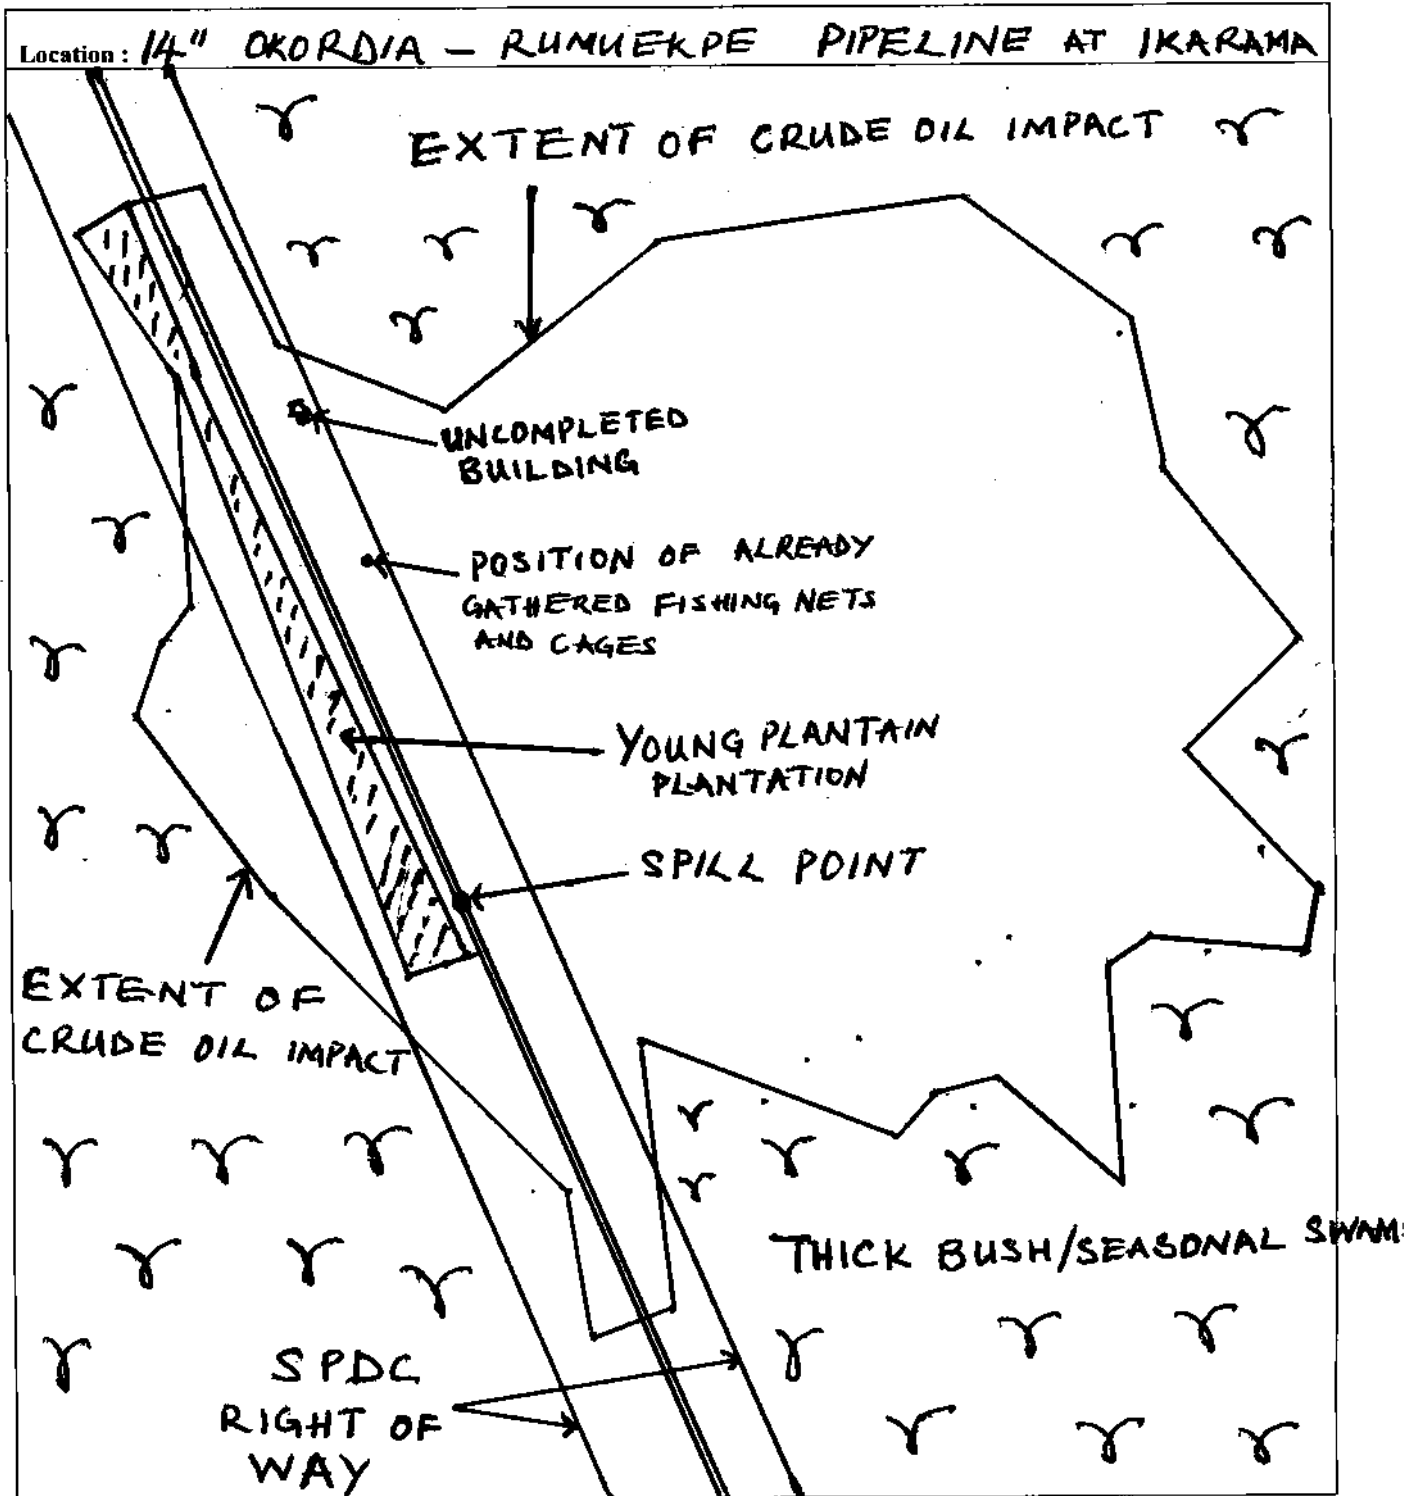 Location : 14" OKORDIA — RUMUEKPE PIPELINE AT IKARAMA
EXTENT OF CRUDE OIL IMPACT
UNCOMPLETED
BUILDING
POSITION OF ALREADY
GATHERED FISHING NETS
AND CAGES
YOUNG PLANTAIN
PLANTATION
SPILL POINT
EXTENT OF
CRUDE OIL IMPACT
THICK BUSH/SEASONAL SWAM
SPDC
RIGHT OF
WAY